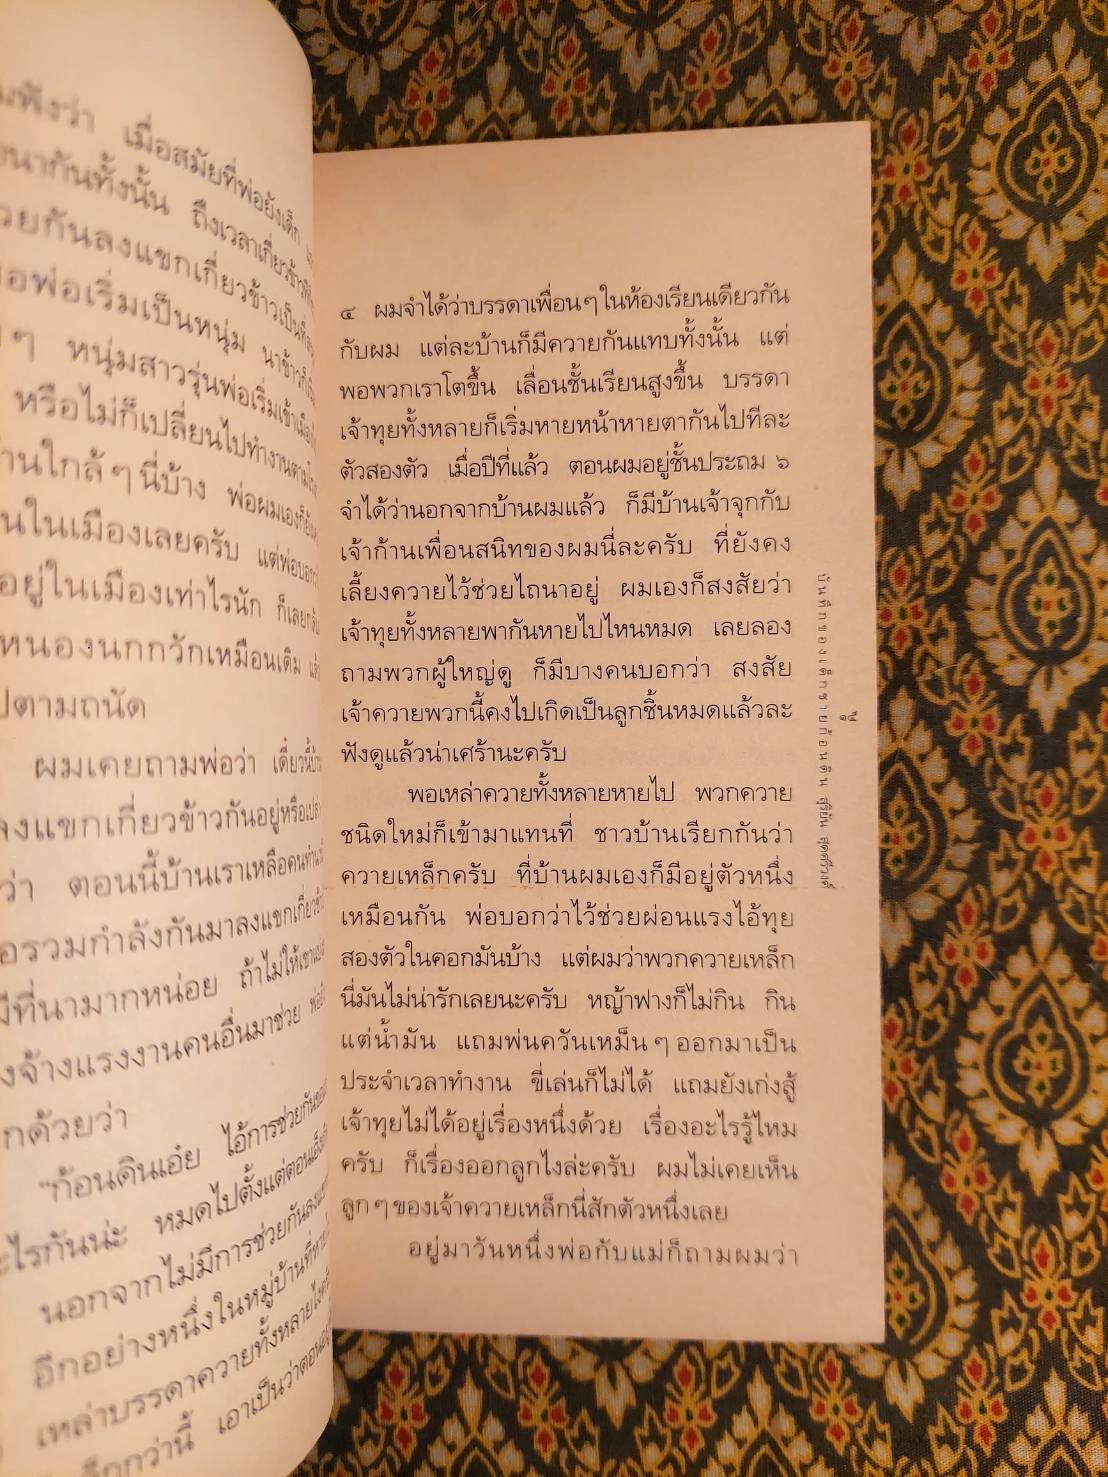 มฟังว่า เมื่อสมัยที่พ่อยังเด็ก
นากันทั้งนั้น ถึงเวลาเกี่ยวข้าว
วยกันลงแขกเกี่ยวข้าวเป็น
อพ่อเริ่มเป็นหนุ่ม นาข้าว
ๆ หนุ่มสาวรุ่นพ่อเริ่มเข้าเมือง
หรือไม่ก็เปลี่ยนไปทำงานตาม
านใกล้ๆ นี่บ้าง พ่อผมเอง
นในเมืองเลยครับ แต่พ่อบอก
อยู่ในเมืองเท่าไรนัก ก็เลย
หนองนกกวักเหมือนเดิม
ปตามถนัด
ผมเคยถามพ่อว่า เดี๋ยวนี้
ลงแขกเกี่ยวข้าวกันอยู่หรือ
ว่า ตอนนี้บ้านเราเหลือคน
อรวมกำลังกันมาลงแขกเกี่ยว
มีที่นามากหน่อย ถ้าไม่ให้
งจ้างแรงงานคนอื่นมาช่วย
กด้วยว่า
"ก้อนดินเอ๋ย ไอ้การช่วยกัน
ะไรกันน่ะ หมดไปตั้งแต่ตอน
นอกจากไม่มีการช่วยกันลง
อีกอย่างหนึ่งในหมู่บ้านที่
เหล่าบรรดาควายทั้งหลาย
กว่านี้ เอาเป็นว่าตอน
๔ ผมจำได้ว่าบรรดาเพื่อนๆ ในห้องเรียนเดียวกัน
กับผม แต่ละบ้านก็มีควายกันแทบทั้งนั้น แต่
พอพวกเราโตขึ้น เลื่อนชั้นเรียนสูงขึ้น บรรดา
เจ้าทุยทั้งหลายก็เริ่มหายหน้าหายตากันไปทีละ
ตัวสองตัว เมื่อปีที่แล้ว ตอนผมอยู่ชั้นประถม ๖
จำได้ว่านอกจากบ้านผมแล้ว ก็มีบ้านเจ้าจุกกับ
เจ้าก้านเพื่อนสนิทของผมนี่ละครับ ที่ยังคง
เลี้ยงควายไว้ช่วยไถนาอยู่ ผมเองก็สงสัยว่า
เจ้าทุยทั้งหลายพากันหายไปไหนหมด เลยลอง
ถามพวกผู้ใหญ่ดู ก็มีบางคนบอกว่า สงสัย
เจ้าควายพวกนี้คงไปเกิดเป็นลูกชิ้นหมดแล้วละ
ฟังดูแล้วน่าเศร้านะครับ
พอเหล่าควายทั้งหลายหายไป พวกควาย
ชนิดใหม่ก็เข้ามาแทนที่ ชาวบ้านเรียกกันว่า
ควายเหล็กครับ ที่บ้านผมเองก็มีอยู่ตัวหนึ่ง
เหมือนกัน พ่อบอกว่าไว้ช่วยผ่อนแรงไอ้ทุย
สองตัวในคอกมันบ้าง แต่ผมว่าพวกควายเหล็ก
นี่มันไม่น่ารักเลยนะครับ หญ้าฟางก็ไม่กิน กิน
แต่น้ำมัน แถมพ่นควันเหม็นๆ ออกมาเป็น
ประจำเวลาทำงาน ขี่เล่นก็ไม่ได้ แถมยังเก่งสู้
เจ้าทุยไม่ได้อยู่เรื่องหนึ่งด้วย เรื่องอะไรรู้ไหม
ครับ ก็เรื่องออกลูกไงล่ะครับ ผมไม่เคยเห็น
ลูกๆ ของเจ้าควายเหล็กนี่สักตัวหนึ่งเลย
อยู่มาวันหนึ่งพ่อกับแม่ก็ถามผมว่า
บันทึกของเด็กชายก้อนดิน สุริยัน สุดศรีวงศ์